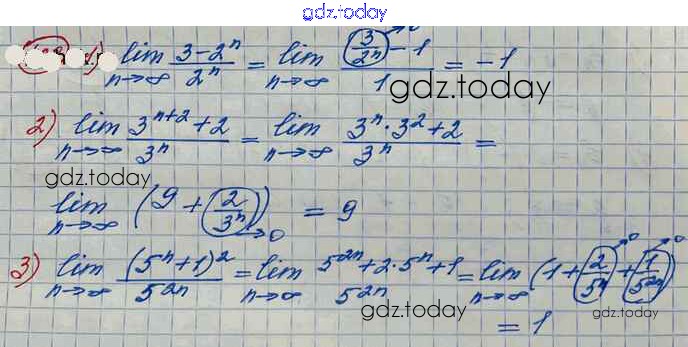 gdz.today
1) lim n→∞ (3 - 2ⁿ)/2ⁿ = lim n→∞ (3/2ⁿ - 1)/1 = -1
→0
gdz.today
2) lim n→∞ (3ⁿ⁺² + 2)/3ⁿ = lim n→∞ (3ⁿ · 3² + 2)/3ⁿ =
gdz.today
lim n→∞ (9 + 2/3ⁿ) = 9
→0
3) lim n→∞ (5ⁿ + 1)²/5²ⁿ = lim n→∞ (5²ⁿ + 2 · 5ⁿ + 1)/5²ⁿ = lim n→∞ (1 + 2/5ⁿ + 1/5²ⁿ)
→0 →0
gdz.today
gdz.today
= 1